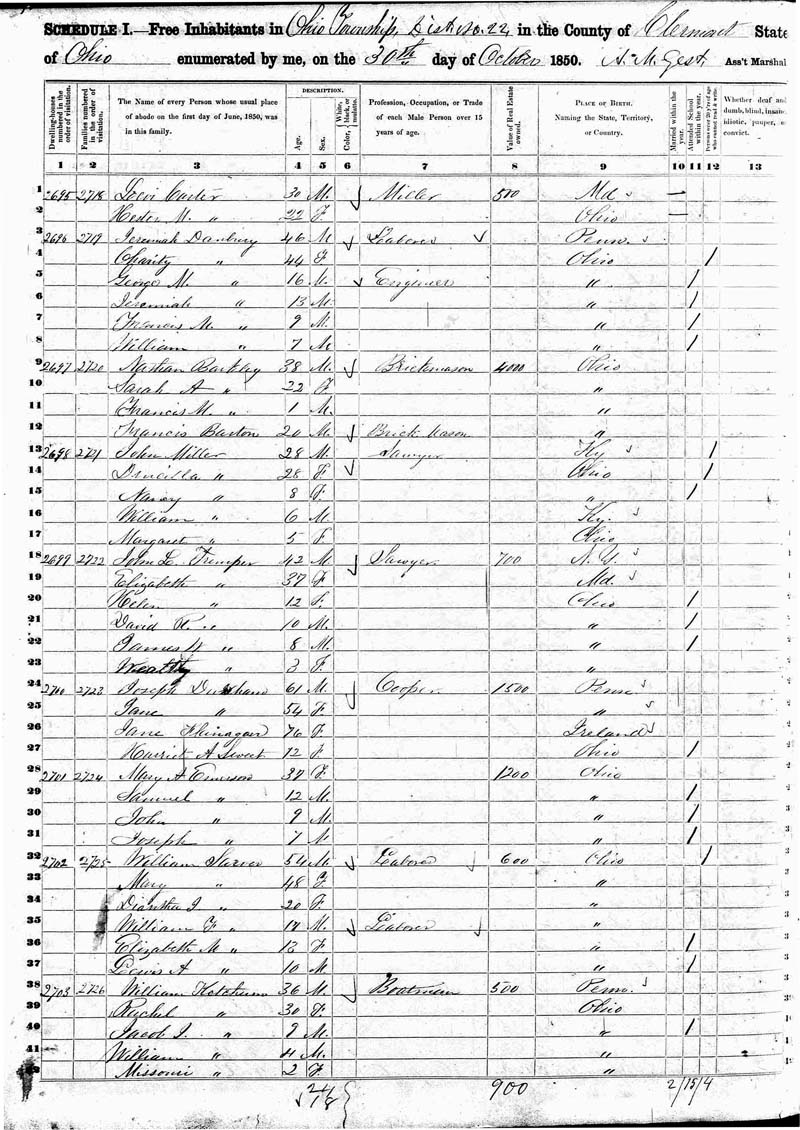 SCHEDULE I.—Free Inhabitants in Ohio Township, Dist No. 22 in the County of Clermont State
of Ohio enumerated by me, on the 30th day of October 1850. A. M. Gest Ass't Marshal
Dwelling-houses numbered in the order of visitation. Families numbered in the order of visitation. The Name of every Person whose usual place of abode on the first day of June, 1850, was in this family. DESCRIPTION. Age. Sex. Color, White, black, or mulatto. Profession, Occupation, or Trade of each Male Person over 15 years of age. Value of Real Estate owned PLACE OF BIRTH. Naming the State, Territory, or Country. Married within the year. Attended School within the year. Persons over 20 y'rs of age who cannot read & write. Whether deaf and dumb, blind, insane, idiotic, pauper, or convict.
1 2 3 4 5 6 7 8 9 10 11 12 13
1 2695 2718 Carter 30 M. Miller 500 Md —
2 Hester M. " 22 F. Ohio —
3 2696 2719 Jeremiah Danbury 46 M Leaborer Penn.
4 Charity " 44 F Ohio /
5 George M. " 16 M. Engineer " /
6 Jeremiah " 13 M. " /
7 Francis M. " 9 M. " /
8 William " 7 M " /
9 2697 2720 Nathan Barkley 38 M. Brickmason 4000 Ohio
10 Sarah A " 22 F. "
11 Francis M. " 1 M. "
12 Francis Barton 20 M. Brick Mason "
13 2698 2721 John Miller 28 M. Sawyer Ky /
14 Druicilla " 28 F. Ohio /
15 Nancy " 8 F. " /
16 William " 6 M. Ky.
17 Margaret " 5 F. Ohio
18 2699 2722 John L. Tremper 42 M Sawyer 700 N. Y.
19 Elizabeth " 37 F Md.
20 Helen " 12 F. Ohio /
21 David R. " 10 M. " /
22 James W " 8 M. " /
23 Wealthy " 3 F. "
24 2700 2723 Joseph 61 M. Cooper 1500 Penn
25 Jane " 54 F. "
26 Jane 76 F. Ireland
27 Harriet A Sweet 12 F. Ohio /
28 2701 2724 Mary A Emerson 37 F. 1200 Ohio
29 Samuel " 12 M. " /
30 John " 9 M. " /
31 Joseph " 7 M " /
32 2702 2725 William Sarver 54 M Leaborer 600 Ohio /
33 Mary " 48 F. "
34 Diantha J " 20 F. "
35 William F " 17 M. Leaborer "
36 Elizabeth M " 13 F. " /
37 Lewis A " 10 M " /
38 2703 2726 William 36 M. Boatman 500 Penn.
39 Rachel " 30 F. Ohio
40 Jacob J. " 9 M. " /
41 William " 4 M. "
42 Missouri " 2 F. "
24/18 900 2/15/4